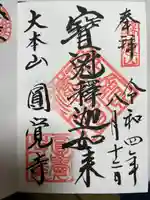 奉拝
令和四年
八月十二日
寳冠釋迦如来
大本山
圓覚寺